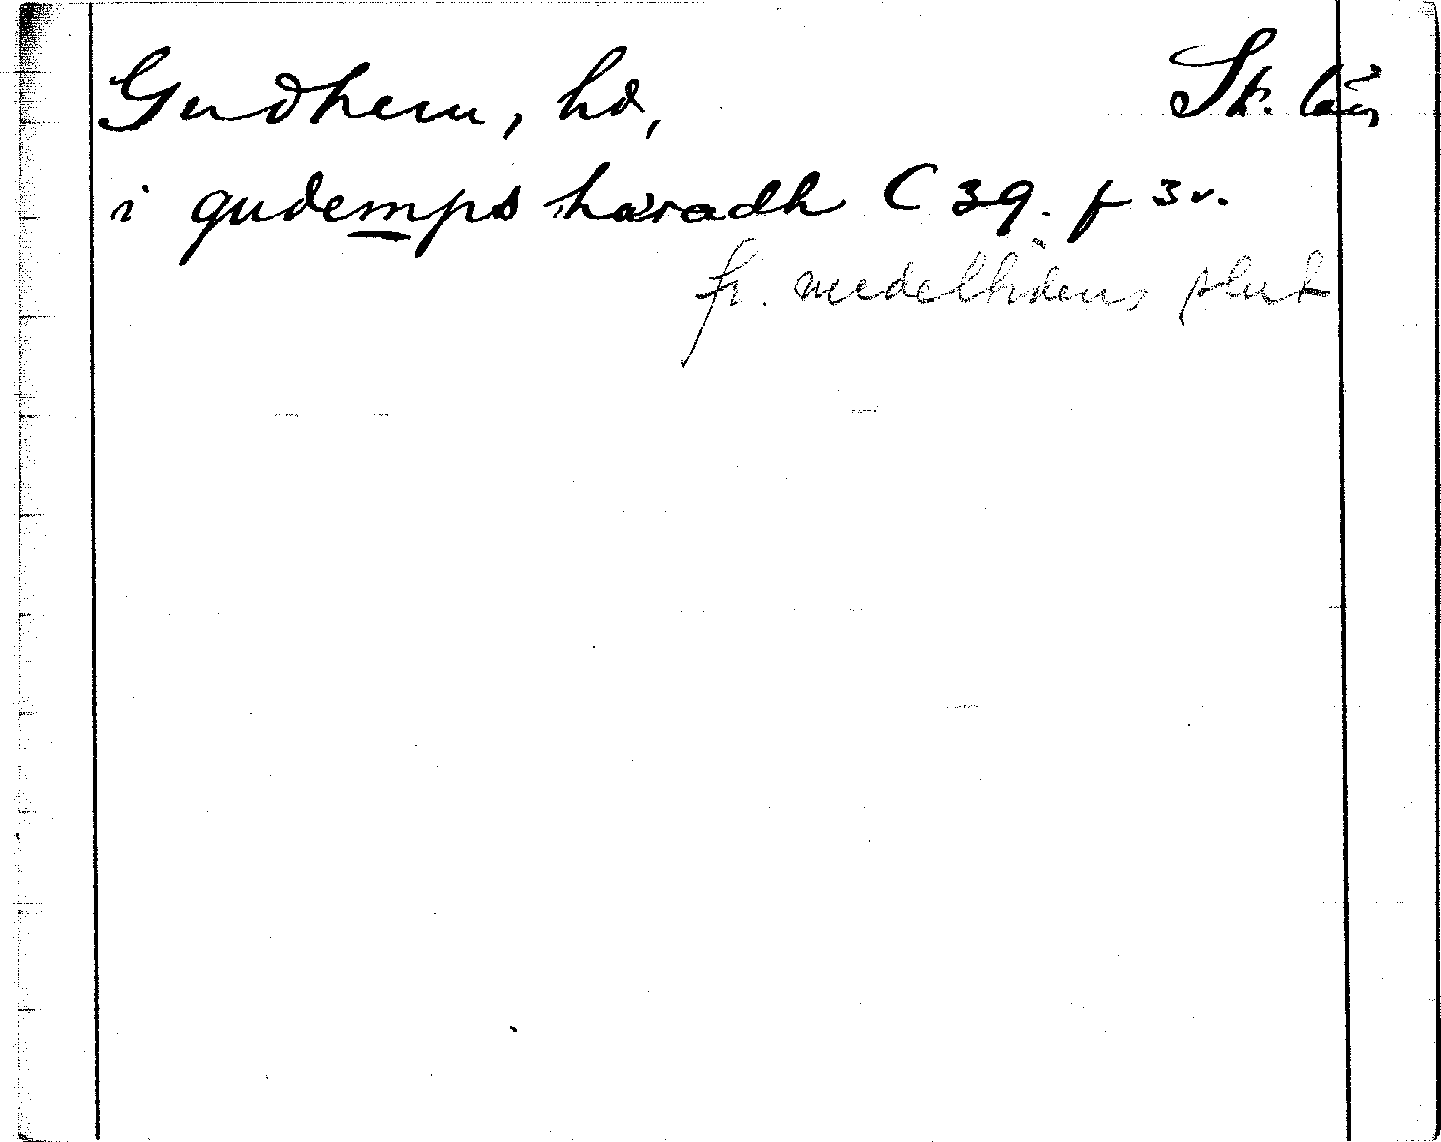 Gudhem, hd, Sk. län
i gudemps häradh C 39. f 3v.
fr. medeltidens slut